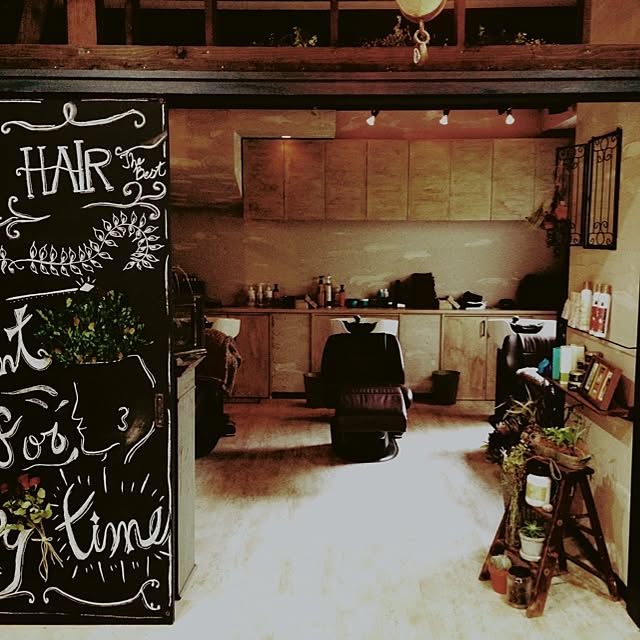 HAIR The Best
nt
for
time